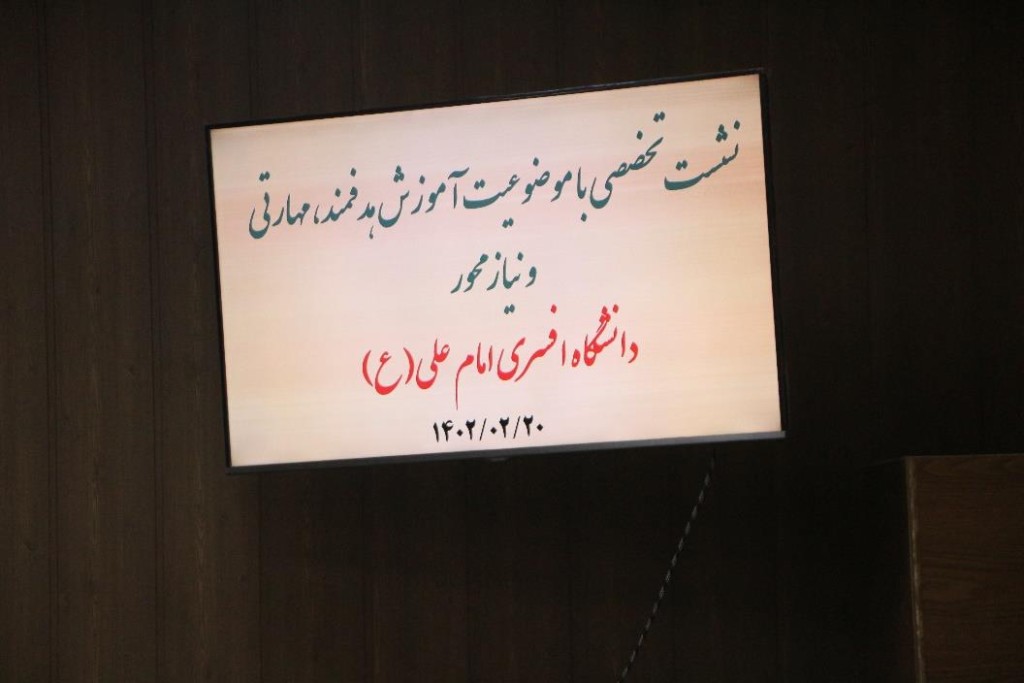 نشست تخصصی با موضوعیت آموزش هدفمند، مهارتی
و نیاز محور
دانشگاه افسری امام علی (ع)
۱۴۰۲/۰۲/۲۰